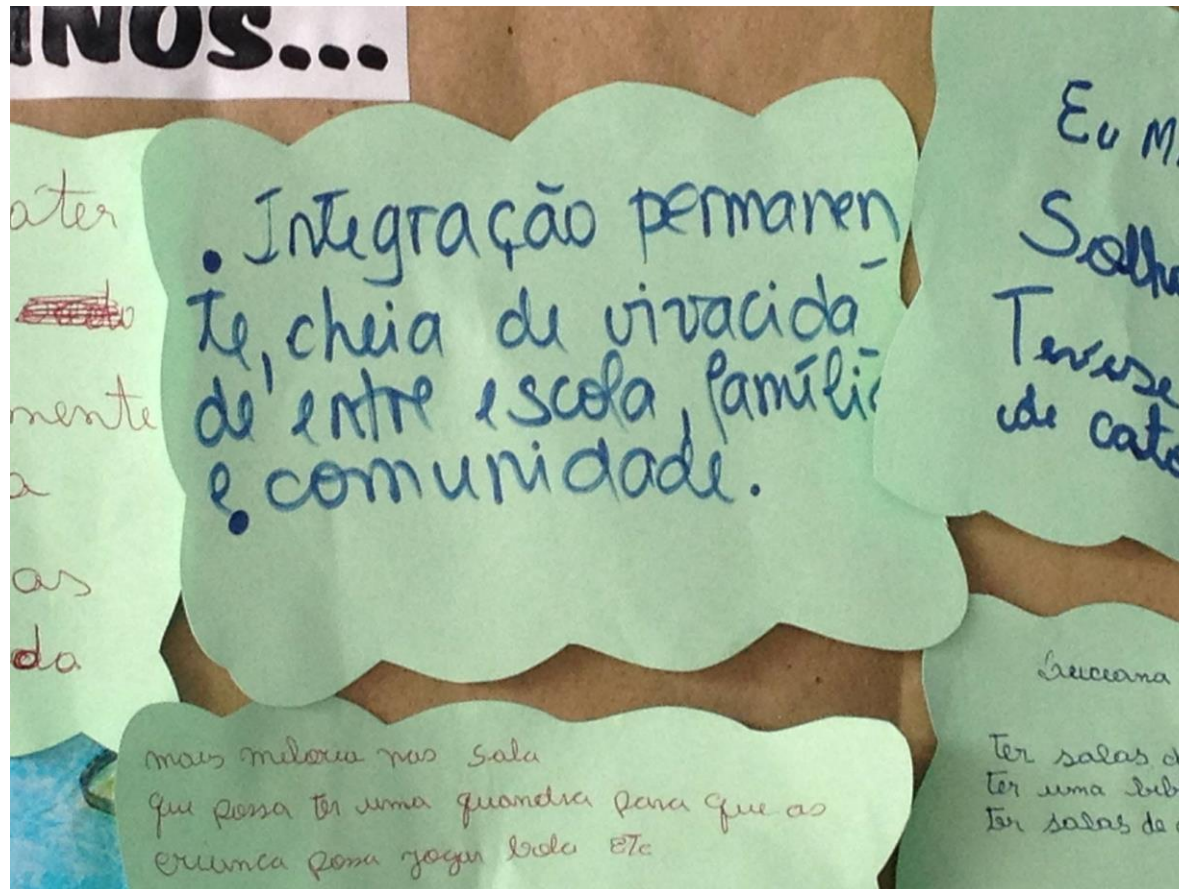 NOS...
. Integração permanen
te, cheia de vivacida
de entre escola, famíli
e comunidade.
ater
mente
a
as
da
Eu M
Solh
Tevese
de cat
mais meloria nas Sala
que possa ter uma quandra para que as
criunca possa jogar bola ETc
Luceana
Ter salas d
ter uma bib
ter salas de